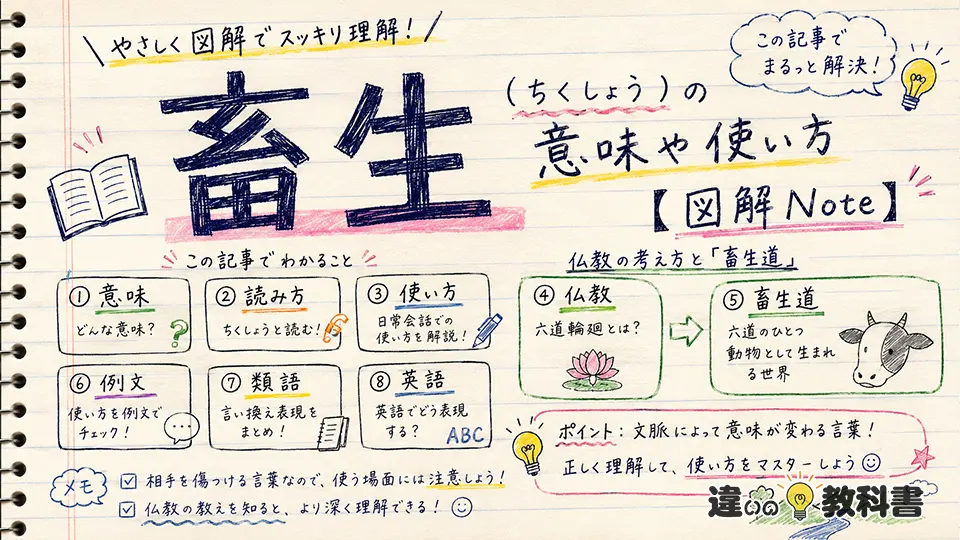 やさしく図解でスッキリ理解！
この記事で
まるっと解決！
畜生
(ちくしょう)の
意味や使い方
【図解Note】
この記事でわかること
① 意味
どんな意味？
?
② 読み方
ちくしょうと読む！
③ 使い方
日常会話での
使い方を解説！
⑥ 例文
使い方を例文で
チェック！
⑦ 類語
言い換え表現を
まとめ！
⑧ 英語
英語でどう表現
する？
ABC
仏教の考え方と「畜生道」
④ 仏教
六道輪廻とは？
⑤ 畜生道
六道のひとつ
動物として生まれ
る世界
ポイント：文脈によって意味が変わる言葉！
正しく理解して、使い方をマスターしよう
メモ
相手を傷つける言葉なので、使う場面には注意しよう！
仏教の教えを知ると、より深く理解できる！
違いの教科書